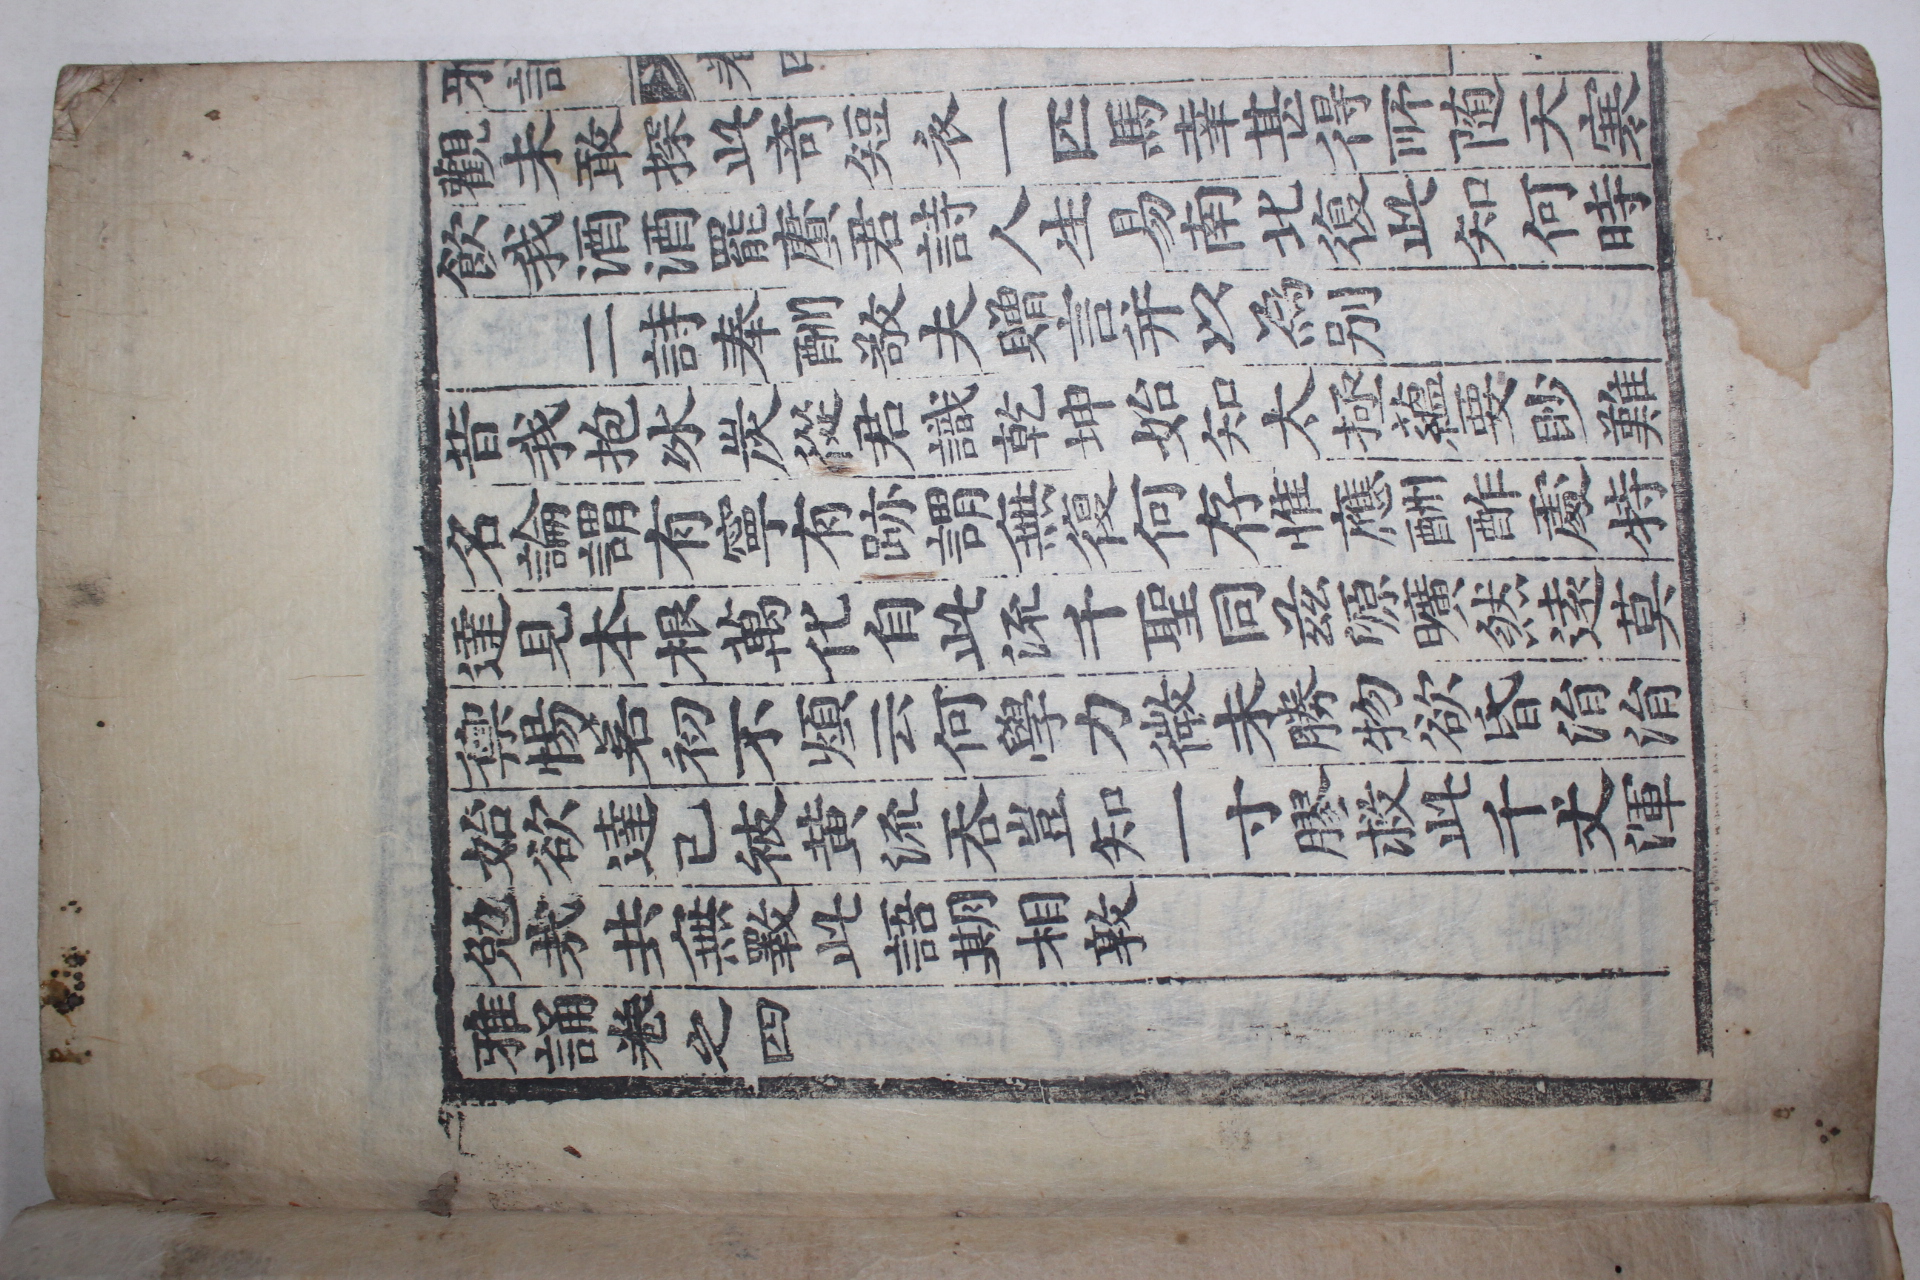 雅誦 卷四
觀未敢探此竒短衣一匹馬幸甚得所随天寒
飲我酒酒罷賡君詩人生易南北復此知何時
二詩奉酬敬夫贈言并以為别
昔我抱冰炭從君識乾坤始知太極蘊要眇難
名論謂有寧有跡謂無復何存惟應酬酢處特
達見本根萬化自此流千聖同兹源曠然逺莫
禦惕若初不煩云何學力微未勝物欲昏涓涓
始欲達已被黄流吞豈知一寸膠救此千丈渾
勉㢤共無斁此語期相敦
雅誦卷之四